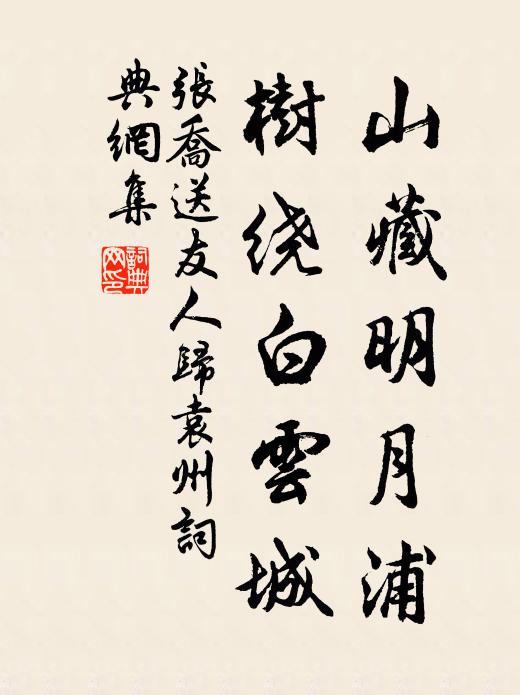 山藏明月浦
樹绕白雲城
張喬送友人歸袁州詞
典網集
詞典
网印